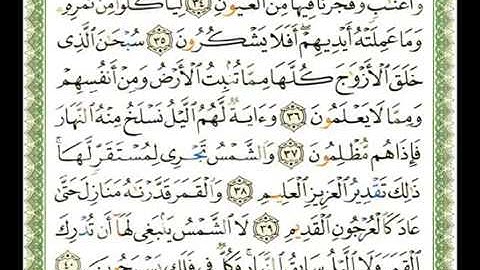 وَأَعْنَٰبٍ وَفَجَّرْنَا فِيهَا مِنَ ٱلْعُيُونِ ٣٤ لِيَأْكُلُوا۟ مِن ثَمَرِهِۦ
وَمَا عَمِلَتْهُ أَيْدِيهِمْ ۖ أَفَلَا يَشْكُرُونَ ٣٥ سُبْحَٰنَ ٱلَّذِى
خَلَقَ ٱلْأَزْوَٰجَ كُلَّهَا مِمَّا تُنۢبِتُ ٱلْأَرْضُ وَمِنْ أَنفُسِهِمْ
وَمِمَّا لَا يَعْلَمُونَ ٣٦ وَءَايَةٌ لَّهُمُ ٱلَّيْلُ نَسْلَخُ مِنْهُ ٱلنَّهَارَ
فَإِذَا هُم مُّظْلِمُونَ ٣٧ وَٱلشَّمْسُ تَجْرِى لِمُسْتَقَرٍّ لَّهَا ۚ
ذَٰلِكَ تَقْدِيرُ ٱلْعَزِيزِ ٱلْعَلِيمِ ٣٨ وَٱلْقَمَرَ قَدَّرْنَٰهُ مَنَازِلَ حَتَّىٰ
عَادَ كَٱلْعُرْجُونِ ٱلْقَدِيمِ ٣٩ لَا ٱلشَّمْسُ يَنۢبَغِى لَهَآ أَن تُدْرِكَ
ٱلْقَمَرَ وَلَا ٱلَّيْلُ سَابِقُ ٱلنَّهَارِ ۚ وَكُلٌّ فِى فَلَكٍ يَسْبَحُونَ ٤٠